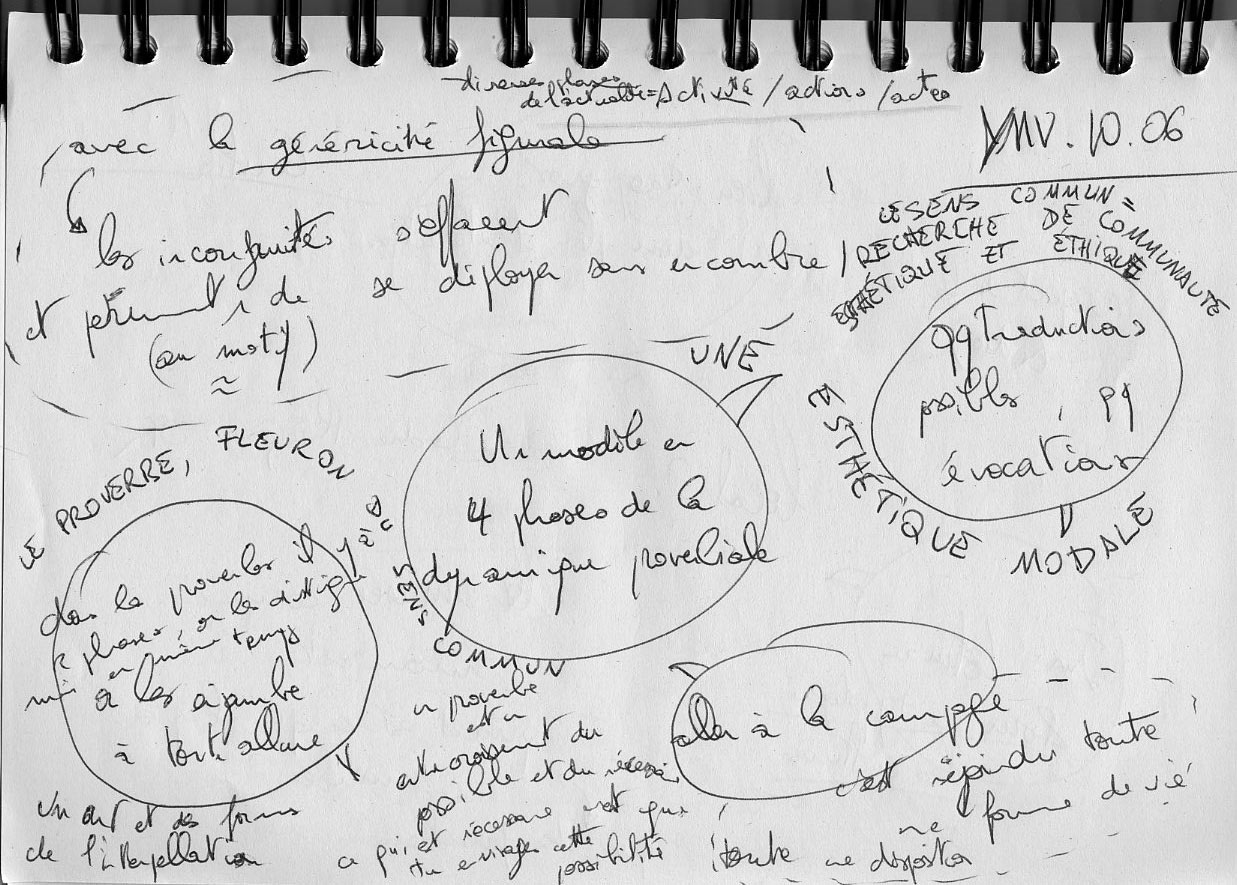 diverses phases
de l'actualité = Activité / actions / actes
YMV. 10. 06
avec la généricité figurale
les incongruités s'effacent
et permett de se déployer sans encombre
(au motif)
≈
LE SENS COMMUN =
RECHERCHE DE COMMUNAUTÉ
ESTHÉTIQUE ET ÉTHIQUE
qq traductions
possibles, qq
évocations
UNE
ESTHÉTIQUE
MODALE
Un modèle en
4 phases de la
dynamique proverbiale
LE PROVERBE, FLEURON
DU
SENS COMMUN
dans les proverbes il y a
phases, on les distingue
mais en même temps
on les enjambe
à toute allure
Un art et des formes
de l'interpellation
un proverbe
est un
entrecroisement du
possible et du nécessaire
ce qui est nécessaire c'est que
tu envisages cette
possibilité
aller à la campagne
c'est rejoindre toute
une forme de vie
toute une disposition